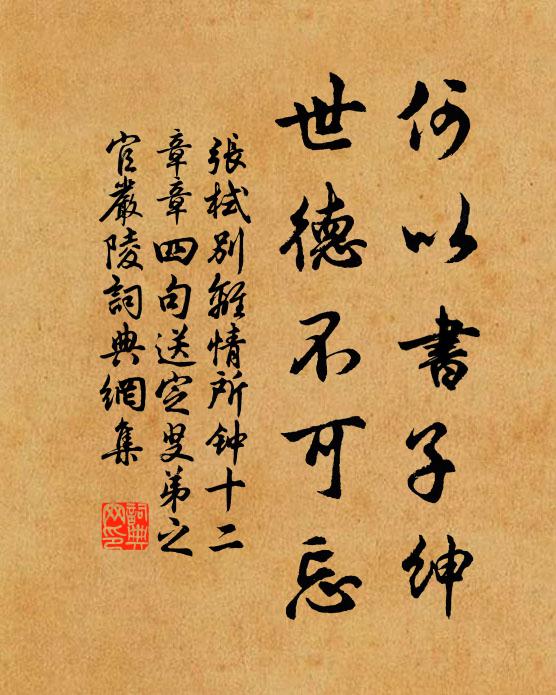 何以書子紳
世德不可忘
張栻別離情所钟十二
章章四句送定叟弟之
官嚴陵詞典網集
詞典
网印